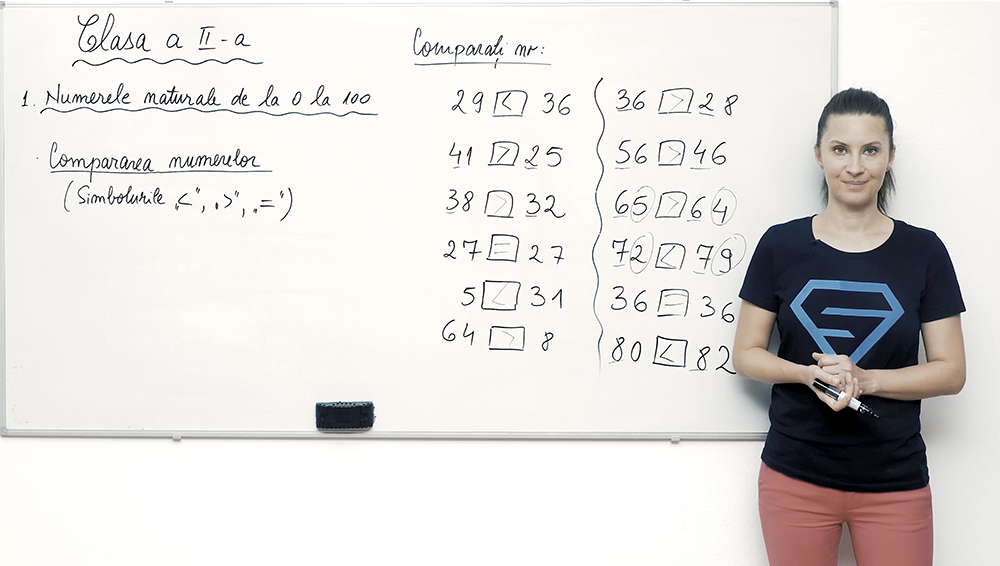 Clasa a II-a
1. Numerele naturale de la 0 la 100
· Compararea numerelor
(Simbolurile „<", „>", „=")
Comparați nr:
29 < 36
41 > 25
38 > 32
27 = 27
5 < 31
64 > 8
36 > 28
56 > 46
65 > 64
72 < 79
36 = 36
80 < 82